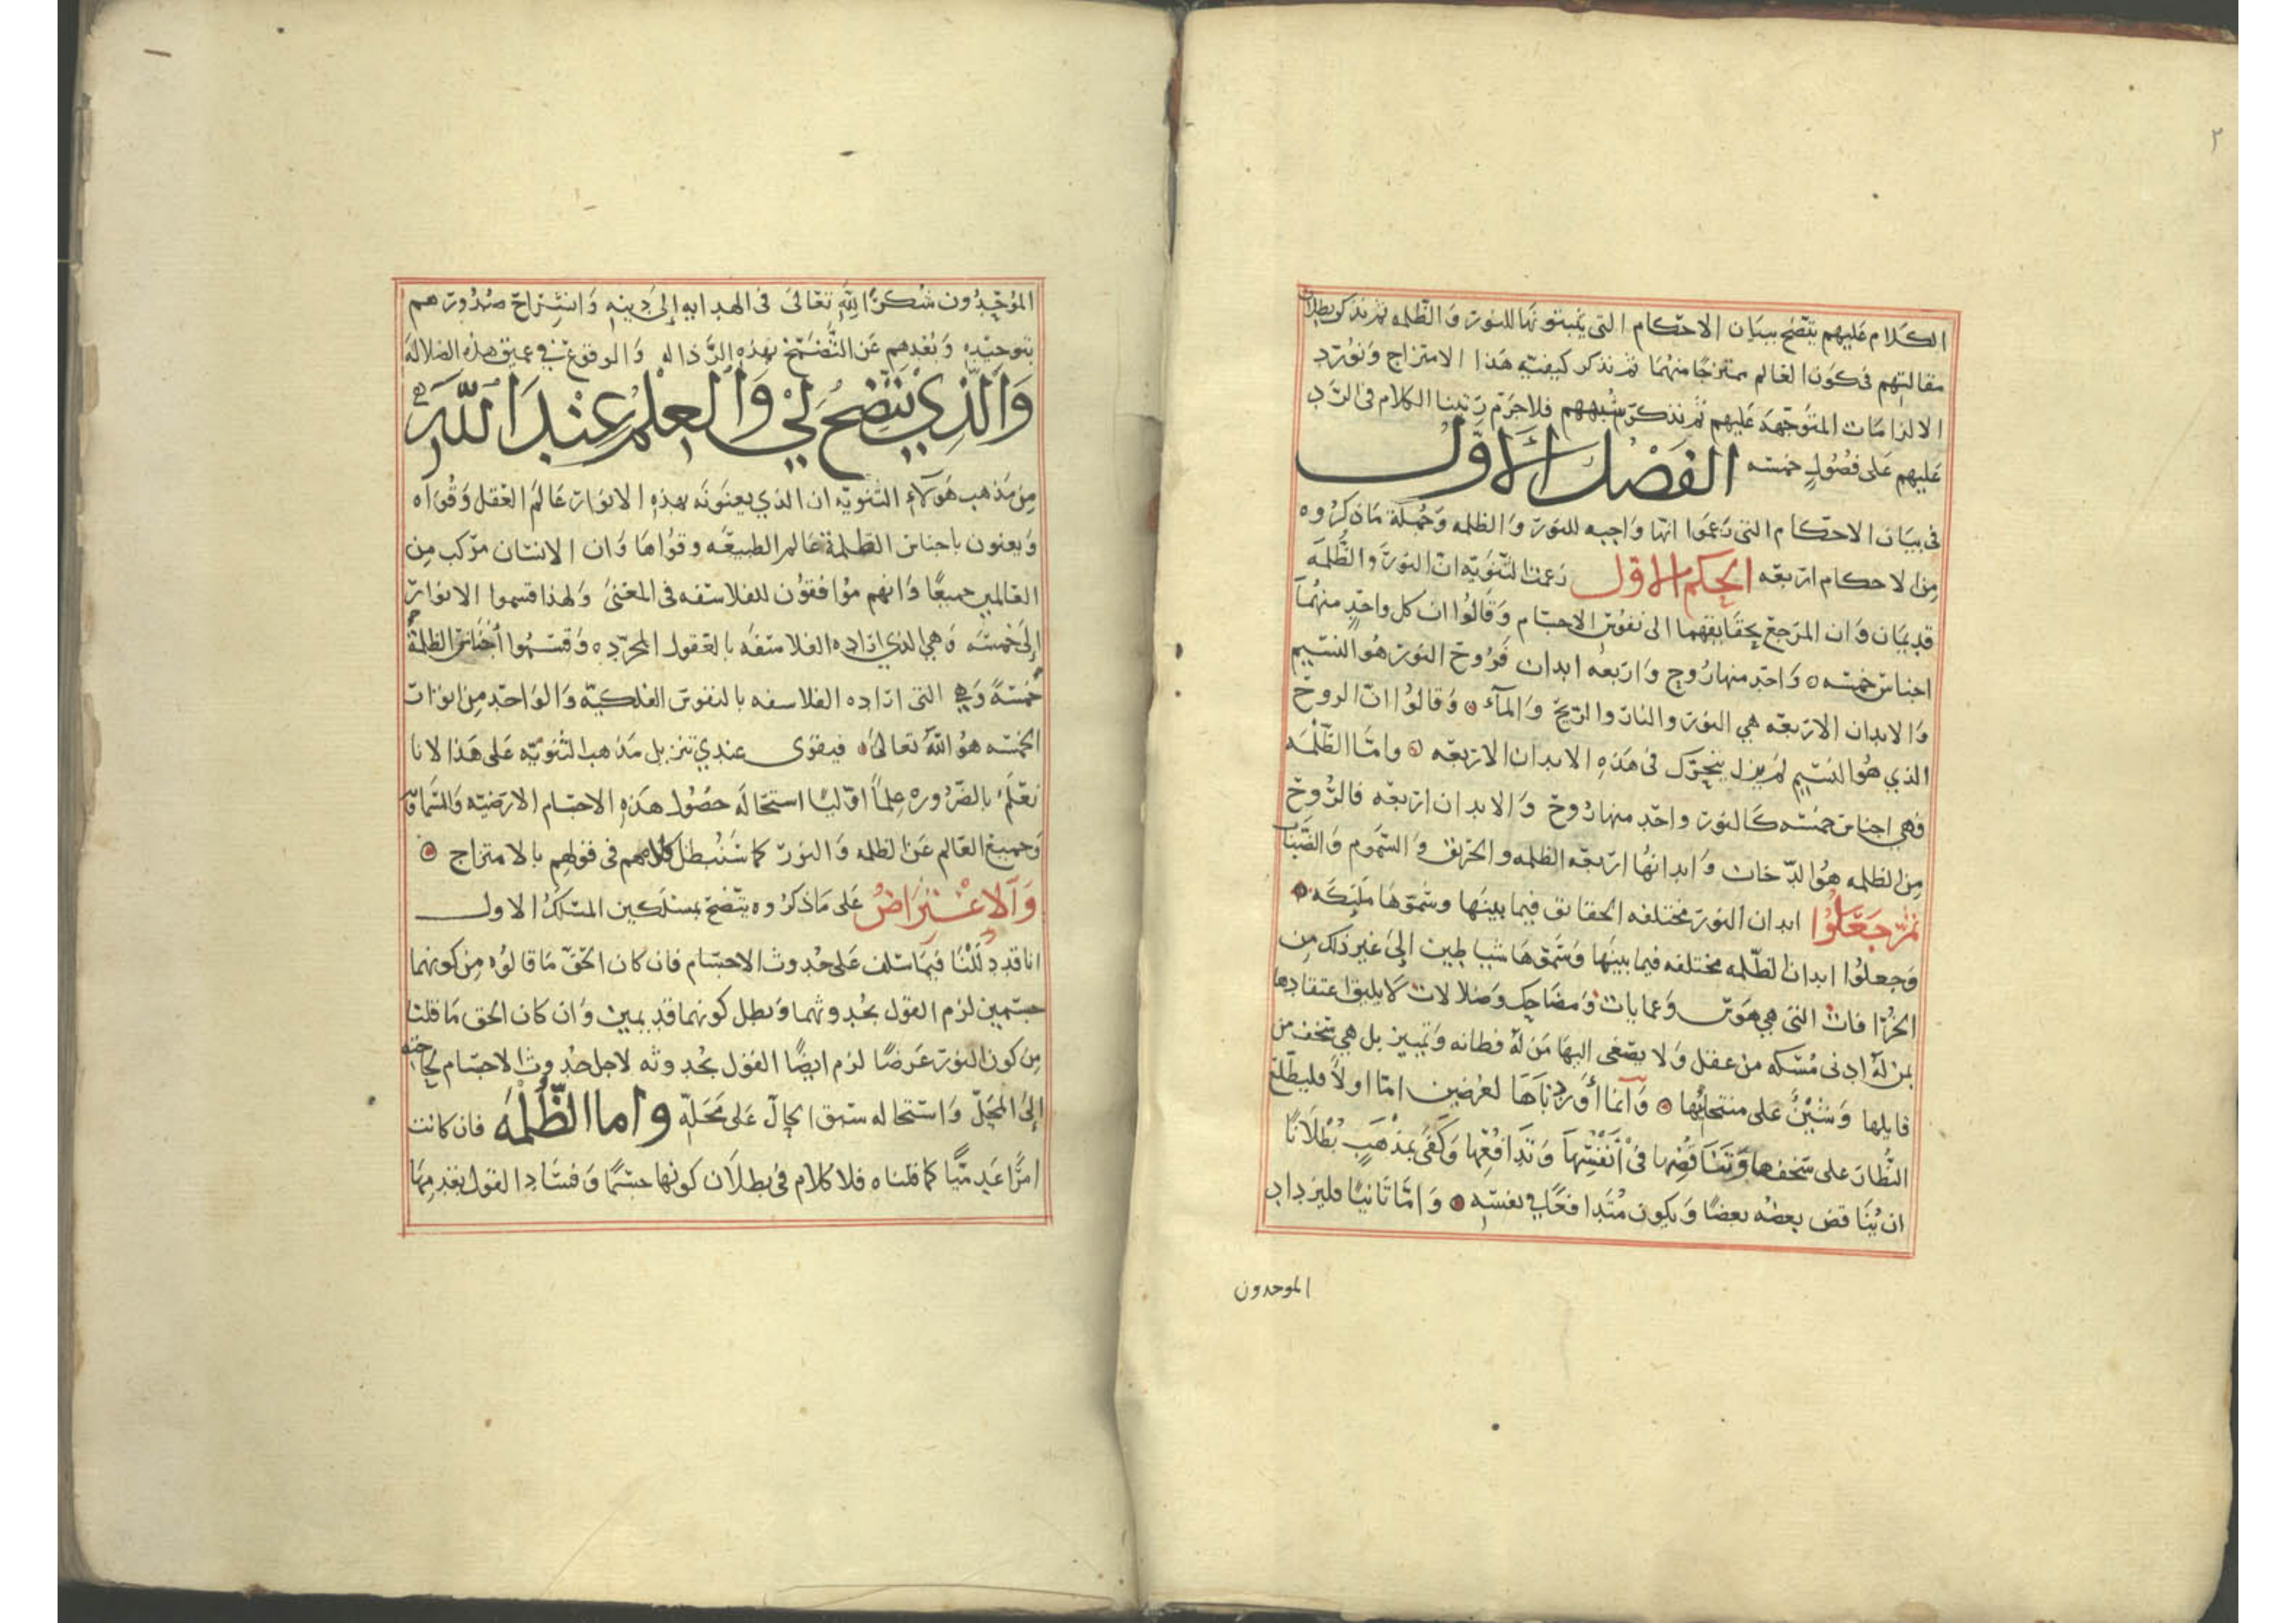 ٢
الكلام عليهم يتضح ببيان الاحكام التى يثبتونها للنور والظلمه ثم نذكر بطلان
مقالتهم فى كون العالم ممتزجًا منهما ثم نذكر كيفية هذا الامتزاج ونورد
الالزامات المتوجهة عليهم ثم نذكر شبههم فلاجرم رتبنا الكلام فى الرد
عليهم على فصولٍ خمسه الفصل الاول
فى بيان الاحكام التى زعموا انها واجبه للنور والظلمه وجملة ماذكروه
من الاحكام اربعه الحكم الاول زعمت الثنويه ان النور والظلمه
قديمان وان المرجع بحقايقهما الى نفوس الاجسام وقالوا ان كل واحدٍ منهما
اجناس خمسه واحد منها روح واربعه ابدان فروح النور هو النسيم
والابدان الاربعه هي النور والنار والريح والماء وقالوا ان الروح
الذي هو النسيم لم يزل يتحرك فى هذه الابدان الاربعه واما الظلمه
فهي اجناس خمسه كالنور واحد منها روح والابدان اربعه فالروح
من الظلمه هو الدخان وابدانها اربعه الظلمه والحريق والسموم والضباب
ثم جعلوا ابدان النور مختلفه الحقائق فيما بينها وسموها مليكه
وجعلوا ابدان الظلمه مختلفه فيما بينها وسموها شياطين الى غير ذلك من
الخرافات التى هي هوس وعمايات ومضاحك وضلالات لايليق اعتقادها
بمن له ادنى مسكه من عقل ولا يصغى اليها من له فطانه وتمييز بل هي سخف من
قايلها وشين على منتحليها وانما أوردناها لغرضين اما اولاً فليطلع
النظار على سخفها وتناقضها فى أنفسها وتدافعها وكفى بمذهبٍ بطلانًا
ان يناقض بعضه بعضًا ويكون متدافعًا فى نفسه واما ثانيًا فليزداد
الموحدون
الموحدون شكرًا لله تعالى فى الهدايه إلى دينه وانشراح صدورهم
بتوحيده وبعدهم عن التضمخ بهذه الرذاله والوقوع فى عميق هذه الضلاله
والذي يتضح لي والعلم عند الله
من مذهب هولاء الثنويه ان الذي يعنونه بهذه الانوار عالم العقل وقواه
ويعنون باجناس الظلمة عالم الطبيعه وقواها وان الانسان مركب من
العالمين جميعًا وانهم موافقون للفلاسفه فى المعنى ولهذا قسموا الانوار
إلى خمسه وهي الذي اراده الفلاسفه بالعقول المجرده وقسموا أجناس الظلمة
خمسةً وهي التى اراده الفلاسفه بالنفوس الفلكيه والواحد من انوار
الخمسه هو الله تعالى فيقوى عندي تنزيل مذهب الثنويه على هذا لانا
نعلم بالضروره علمًا اوليًا استحاله حصول هذه الاجسام الارضيه والسماويه
وجميع العالم عن الظلمه والنور كما سنبطل كلامهم فى قولهم بالامتزاج
والاعتراض على ماذكروه يتضح بمسلكين المسلك الاول
انا قد دللنا فيما سلف على حدوث الاجسام فان كان الحق ما قالوه من كونهما
جسمين لزم القول بحدوثهما وبطل كونهما قديمين وان كان الحق ما قلنا
من كون النور عرضًا لزم ايضًا القول بحدوثه لاجل حدوث الاجسام لحاجته
إلى المحل واستحاله سبق الحال على محله واما الظلمه فان كانت
امرًا عدميًا كما قلناه فلا كلام فى بطلان كونها جسمًا وفساد القول بقدمها